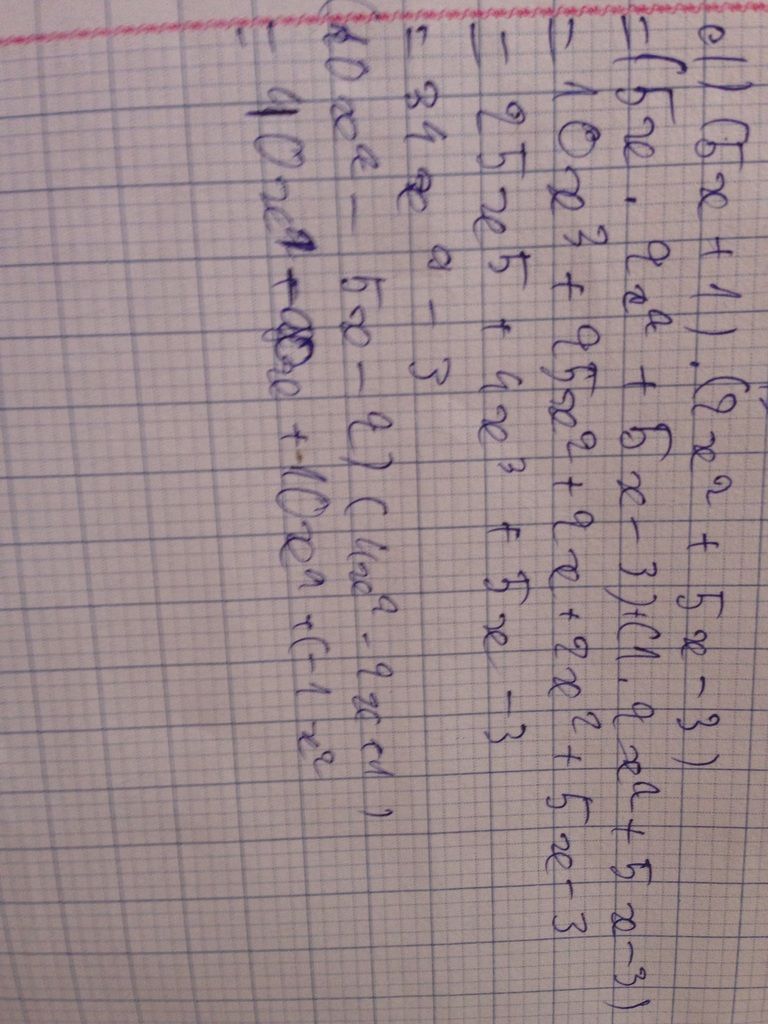 d) (5x + 1) . (2x² + 5x - 3)
= (5x . 2x² + 5x - 3) + (1 . 2x² + 5x - 3)
= 10x³ + 25x² + 2x + 2x² + 5x - 3
= 25x⁵ + 4x³ + 5x - 3
= 34x⁹ - 3
10x² - 5x - 2) (4x² - 2x + 1)
= 40x² + + 10x² + (-1x²